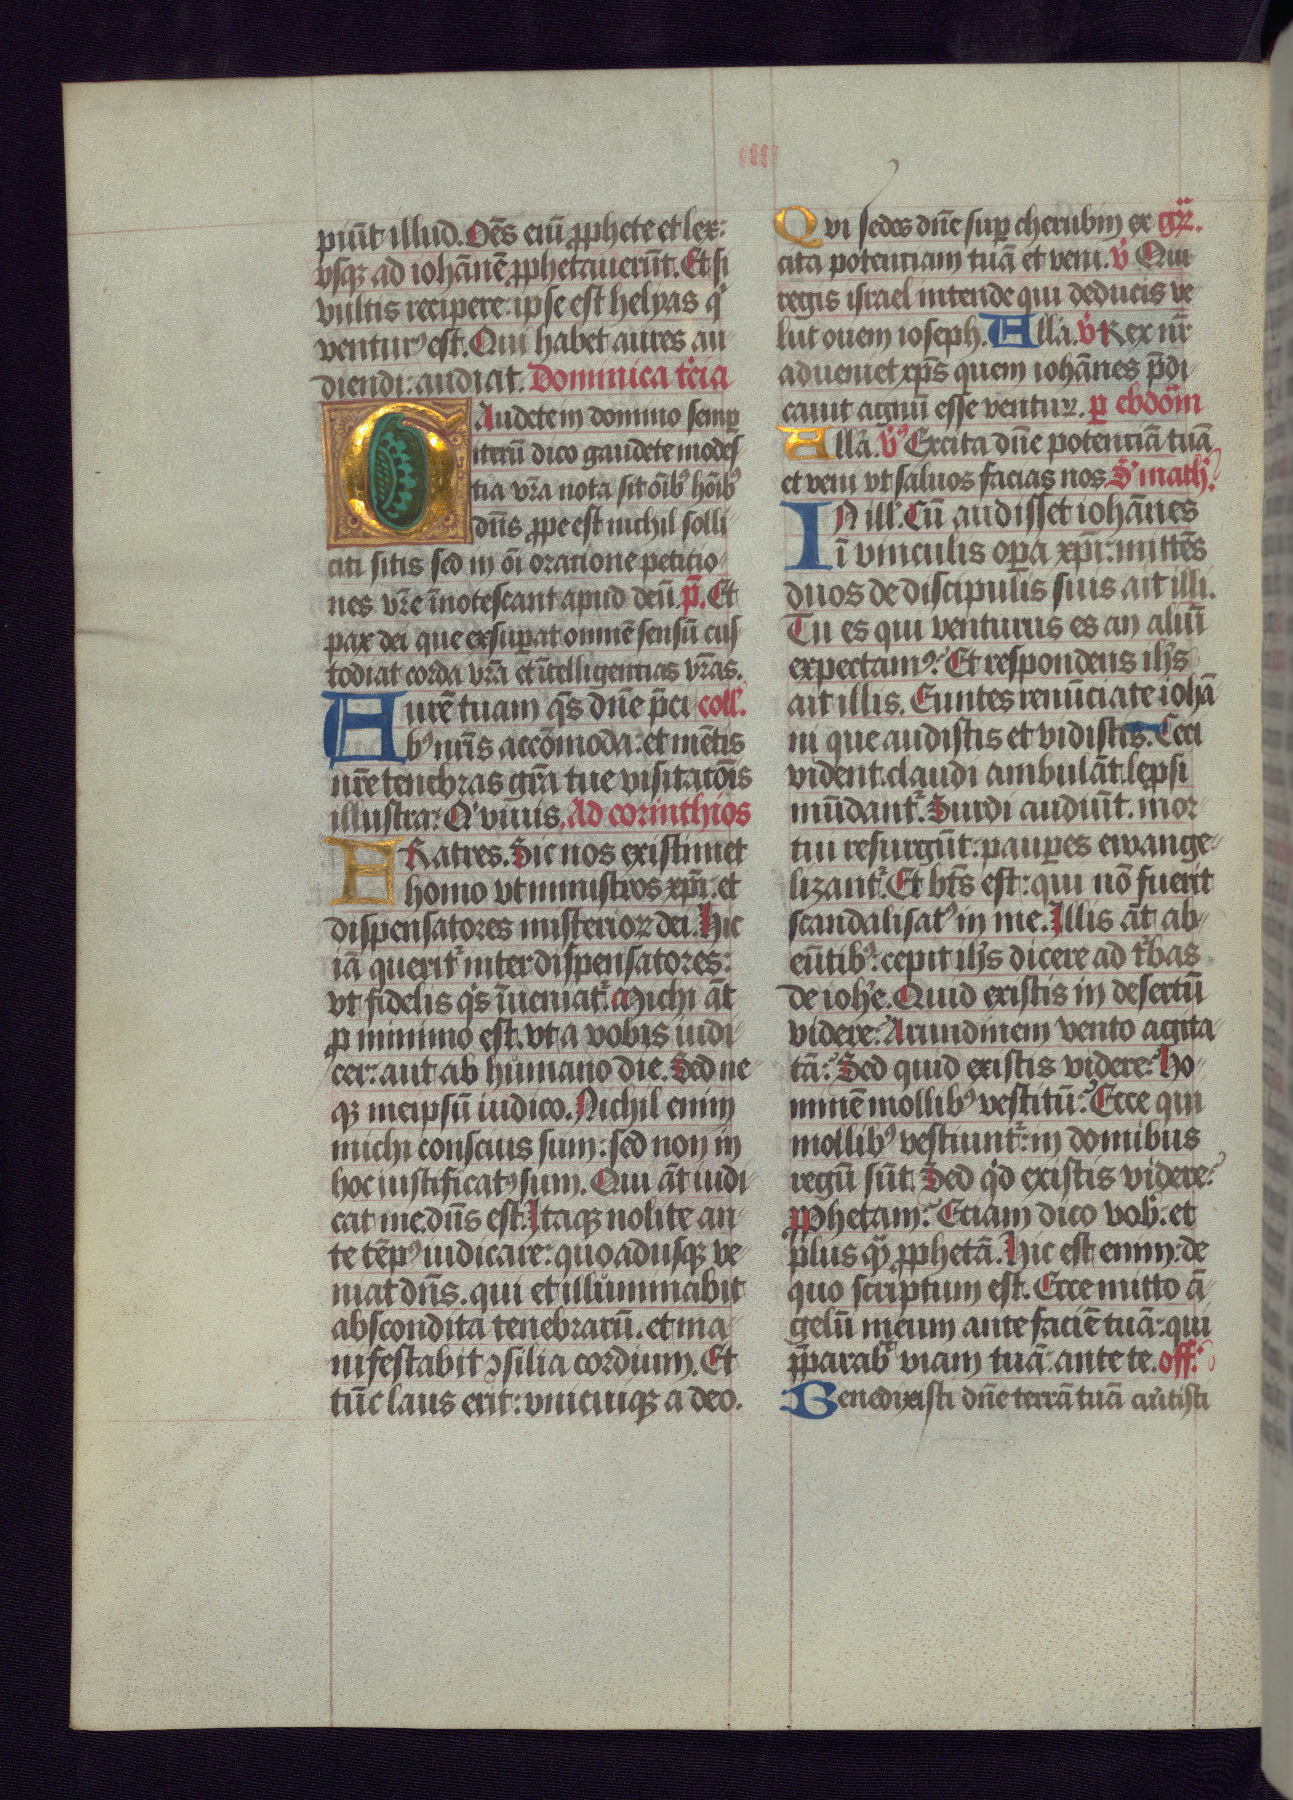 iiii
piūt illud. Oēs eni̅ ꝓphete et lex:
vsqꝫ ad iohānē ꝓphetauerūt. Et si
vultis recipere: ipse est helyas qͥ
venturꝰ est. Qui habet aures au
diendi: audiat. Dominica tͬcia
GAudete in domino semꝑ
iterū dico gaudete modes
tia vr̄a nota sit oībꝰ hoībꝰ
dn̄s ꝓpe est nichil solli
citi sitis sed in oī oratione petitio
nes vr̄e īnotescant apud deū. p̄s. Et
pax dei que exsuꝑat omnē sensū cus
todiat corda vr̄a et ītelligentias vr̄as.
Aurē tuam q̄s dn̄e p̄ci coll'.
bꝰ nr̄is accōmoda: et mētis
nr̄e tenebras gr̄a tue visitatōis
illustra: Qͥ viuis. Ad corinthios
FRatres. Sic nos existimet
homo vt ministros xp̄i: et
dispensatores misterioꝝ dei. Hic
iā queritᷣ inter dispensatores:
vt fidelis qͥs īueniatᷣ. Michi āt
ꝓ minimo est. vt a vobis iudi
cer: aut ab humano die. Sed ne
qꝫ meipsū iudico. Nichil enim
michi conscius sum: sed non in
hoc iustificatꝰ sum. Qui āt iudi
cat me. dn̄s est. Itaqꝫ nolite an
te tēpꝰ iudicare: quoadusqꝫ ve
niat dn̄s. qui et illuminabit
abscondita tenebrarū. et ma
nifestabit ꝯsilia cordium. Et
tūc laus erit: vnicuiqꝫ a deo.
Qvi sedes dn̄e suꝑ cherubim ex gr̄.
cita potentiam tuā et veni. v̄ Qui
regis israel intende qui deducis ve
lut ouem ioseph. Alla. v̄ Rex nr̄
adueniet xp̄s quem iohānes p̄di
cauit agnū esse ventuꝝ. ꝑ ebdōm
Alla. v̄ Excita dn̄e potentiā tuā
et veni vt saluos facias nos. S' math'.
IN ill'. Cū audisset iohānes
ī vinculis oꝑa xp̄i: mittēs
duos de discipulis suis ait illi.
Tu es qui venturus es an aliū
expectamꝰ: Et respondens ih̄s
ait illis. Euntes renūciate iohā
ni que audistis et vidistis. Ceci
vident. claudi ambulāt. lepsi
mūdantᷣ. Surdi audiūt. mor
tui resurgūt: pauꝑes ewange
lizantᷣ. Et bt̄s est: qui nō fuerit
scandalisatꝰ in me. Illis āt ab
eūtibꝰ: cepit ih̄s dicere ad tᷣbas
de ioh̄e. Quid existis in desertū
videre: Arundinem vento agita
tā: Sed quid existis videre: Ho
minē mollibꝰ vestitū: Ecce qui
mollibꝰ vestiuntᷣ: in domibus
regū sūt. Sed qͥd existis videre:
ꝓphetam: Etiam dico vob̄: et
plus qͣ̄ ꝓphetā. Hic est enim: de
quo scriptum est. Ecce mitto ā
gelū meum ante faciē tuā: qui
p̄parabᷣ viam tuā ante te. off.
Benedixisti dn̄e terrā tuā au̓tisti